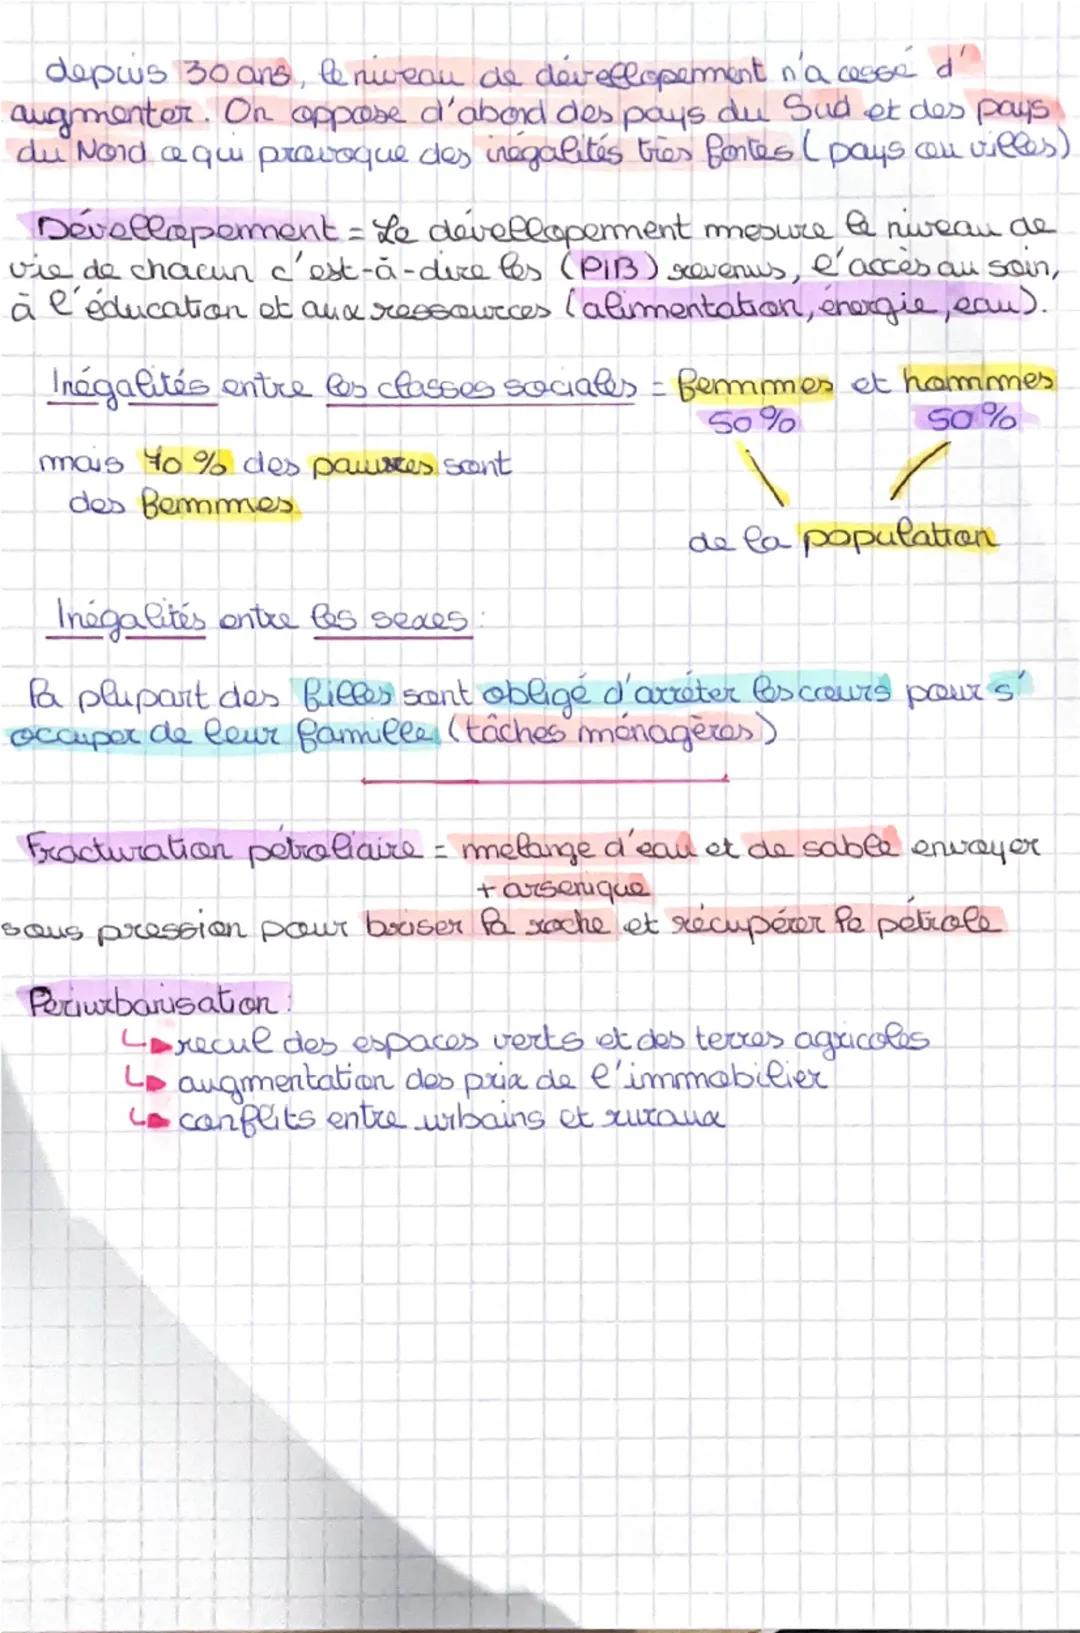 depuis 30 ans, le niveau de dévellopement n'a cessé d'
augmenter. On oppose d'abord des pays du Sud et des pays
du Nord ce qui provoque des inégalités très fortes (pays ou villes)
Dévellopement = Le dévellopement mesure le niveau de
vie de chacun c'est-à-dire les (PIB) revenus, l'accès au soin,
à l'éducation et aux ressources (alimentation, énergie, eau).
Inégalités entre les classes sociales = femmes et hommes
50% 50%
mais 70% des pauvres sont
des femmes
de la population
Inégalités entre les sexes :
la plupart des filles sont obligé d'arrêter les cours pour s'
occuper de leur famille (tâches ménagères)
Fracturation pétroliaire = mélange d'eau et de sable envoyer
+ arsenique
sous pression pour briser la roche et récupérer le pétrole
Periurbanisation :
recul des espaces verts et des terres agricoles
augmentation des prix de l'immobilier
conflits entre urbains et ruraux